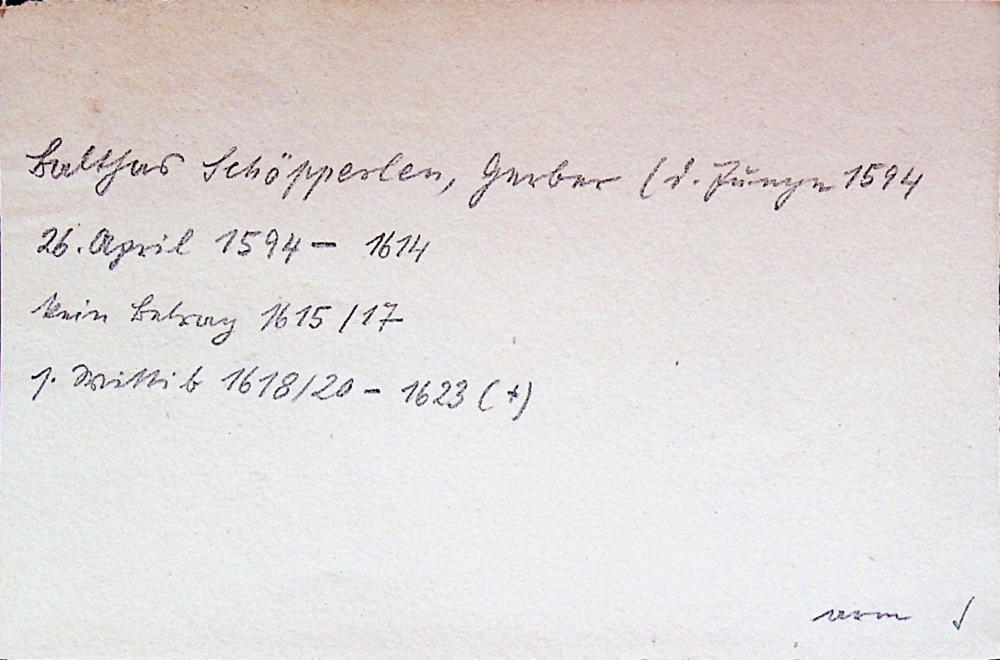 Balthas Schöpperlen, Gerber (d. Junge 1594
26. April 1594 – 1614
kein Betrag 1615/17
s. Wittib 1618/20 – 1623 (+)